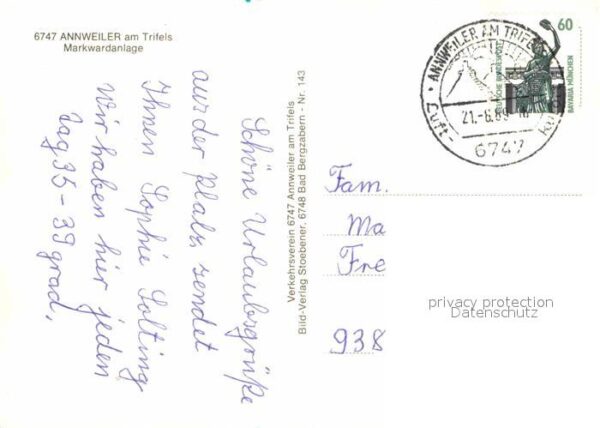 6747 ANNWEILER am Trifels
Markwardanlage
Schöne Urlaubsgrüße
aus der Pfalz sendet
Ihnen Sophie Solting
Wir haben hier jeden
Tag 35-39 grad.
Verkehrsverein 6747 Annweiler am Trifels
Bild-Verlag Stoebener, 6748 Bad Bergzabern - Nr. 143
ANNWEILER AM TRIFELS
21.-6.89
Luft-
6747
60
DEUTSCHE BUNDESPOST
BAVARIA MÜNCHEN
Fam.
Ma
Fre
938
privacy protection
Datenschutz